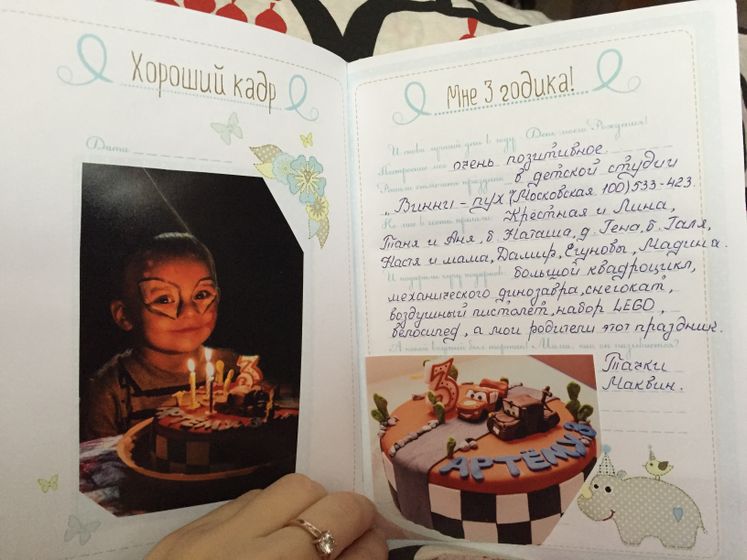 Хороший кадр
Дата
Мне 3 годика!
И снова лучший день в году День моего Рождения!
Настроение мое очень позитивное.
Решили отметить праздник в детской студии
„Винни-пух" (Московская 100) 533-423.
Ко мне в гости пришли: Крестная и Лина,
Таня и Аня, б. Наташа, д. Гена, б. Галя,
Настя и мама, Дамир, Егуновы, Мадина.
И подарили кучу подарков: большой квадроцикл,
механического динозавра, снегокат,
воздушный пистолет, набор LEGO,
велосипед, а мои родители этот праздник.
А какой вкусный был тортик! Мама, как он назывался?
Тачки
Маквин.
3
АРТЁМУ 3
3